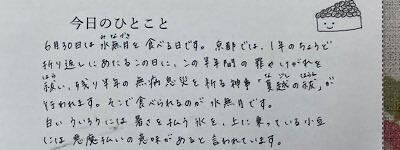 今日のひとこと
みなづき
6月30日は水無月を食べる日です。京都では、1年のちょうど
折り返しにあたるこの日に、この半年間の罪やけがれを
はら
祓い、残り半年の無病息災を祈る神事「夏越の祓」が
なごし はらえ
行われます。そこで食べられるのが水無月です。
白いういろうには暑さを払う氷を、上に乗っている小豆
には悪魔払いの意味があると言われています。